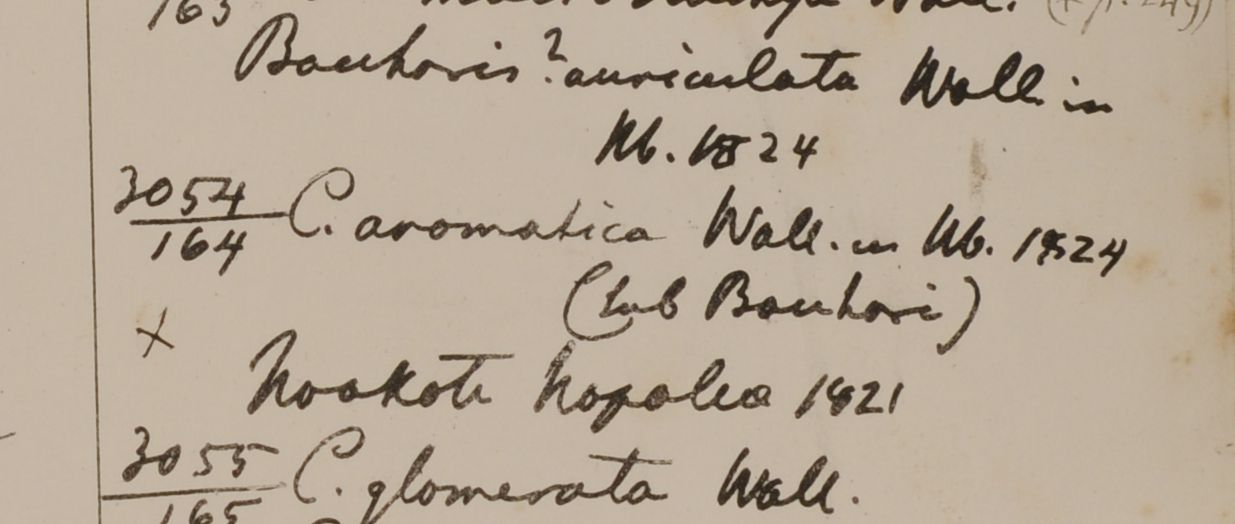 163 Wall. (+ p. 249)
Bacchoris? auriculata Wall. in
Hb. 1824
3054
164 C. aromatica Wall. in Hb. 1824
(sub Bacchori)
x
Noakote Nopalea 1821
3055
165 C. glomerata Wall.